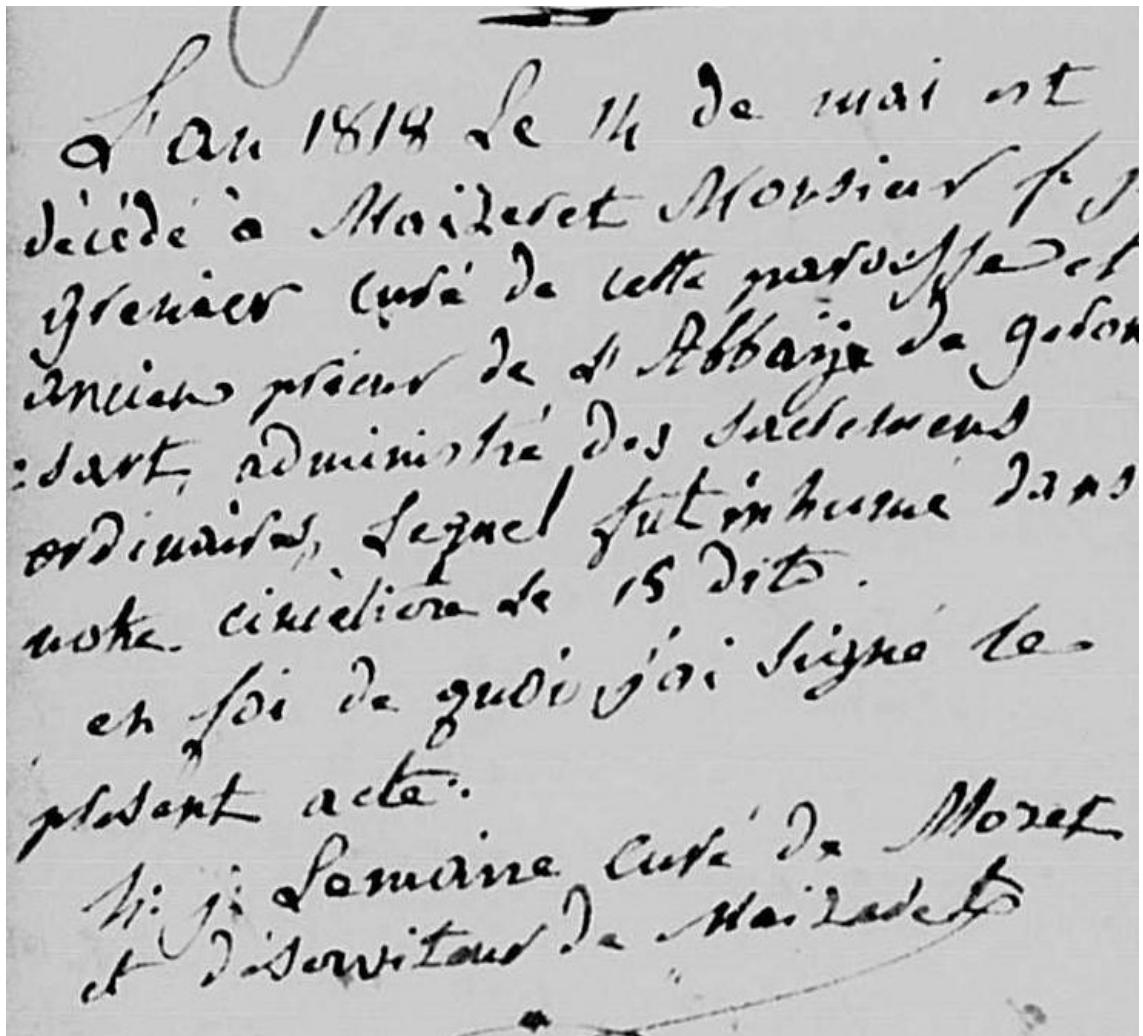 L'an 1818 Le 14 de mai est
décédé à Maizeret Monsieur f. j
grenier curé de cette paroisse et
ancien prieur de L'Abbaije de geron
:sart, administré des sacremens
ordinaires, Lequel fut inhumé dans
notre cimètiere Le 15 dito.
en foi de quoi j'ai signé le
présent acte.
h: j: Lemaire curé de Mozet
et désserviteur de Maizeret